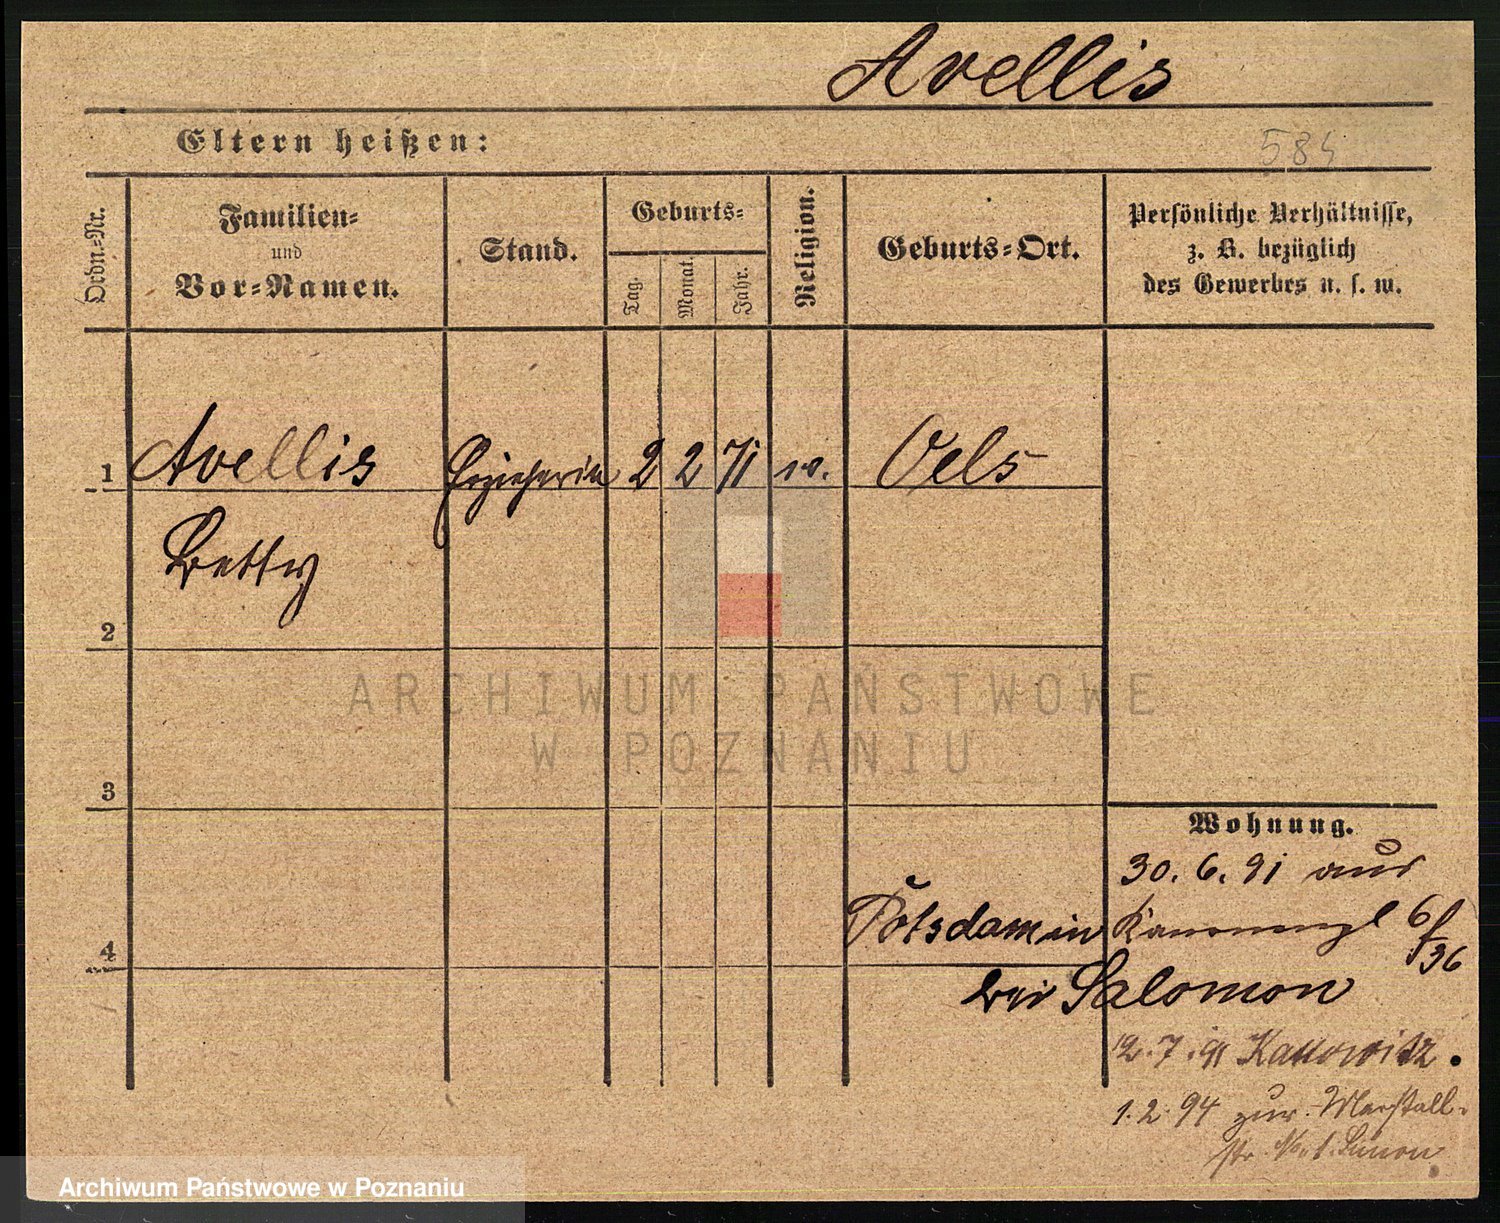 Avellis
Eltern heißen:
584
Ordn.=Nr.
Familien=
und
Vor=Namen.
Stand.
Geburts=
Tag.
Monat.
Jahr.
Religion.
Geburts=Ort.
Persönliche Verhältnisse,
z. B. bezüglich
des Gewerbes u. s. w.
1 Avellis Erzieherin 2 2 71 Oels
Betty
2
ARCHIWUM PAŃSTWOWE
W POZNANIU
3
Wohnung.
30. 6. 91 aus
Potsdam in 6/36
4
bei Salomon
12. 7. 91 Kattowitz.
1. 2. 94 zur Marstall-
str. Simon
Archiwum Państwowe w Poznaniu